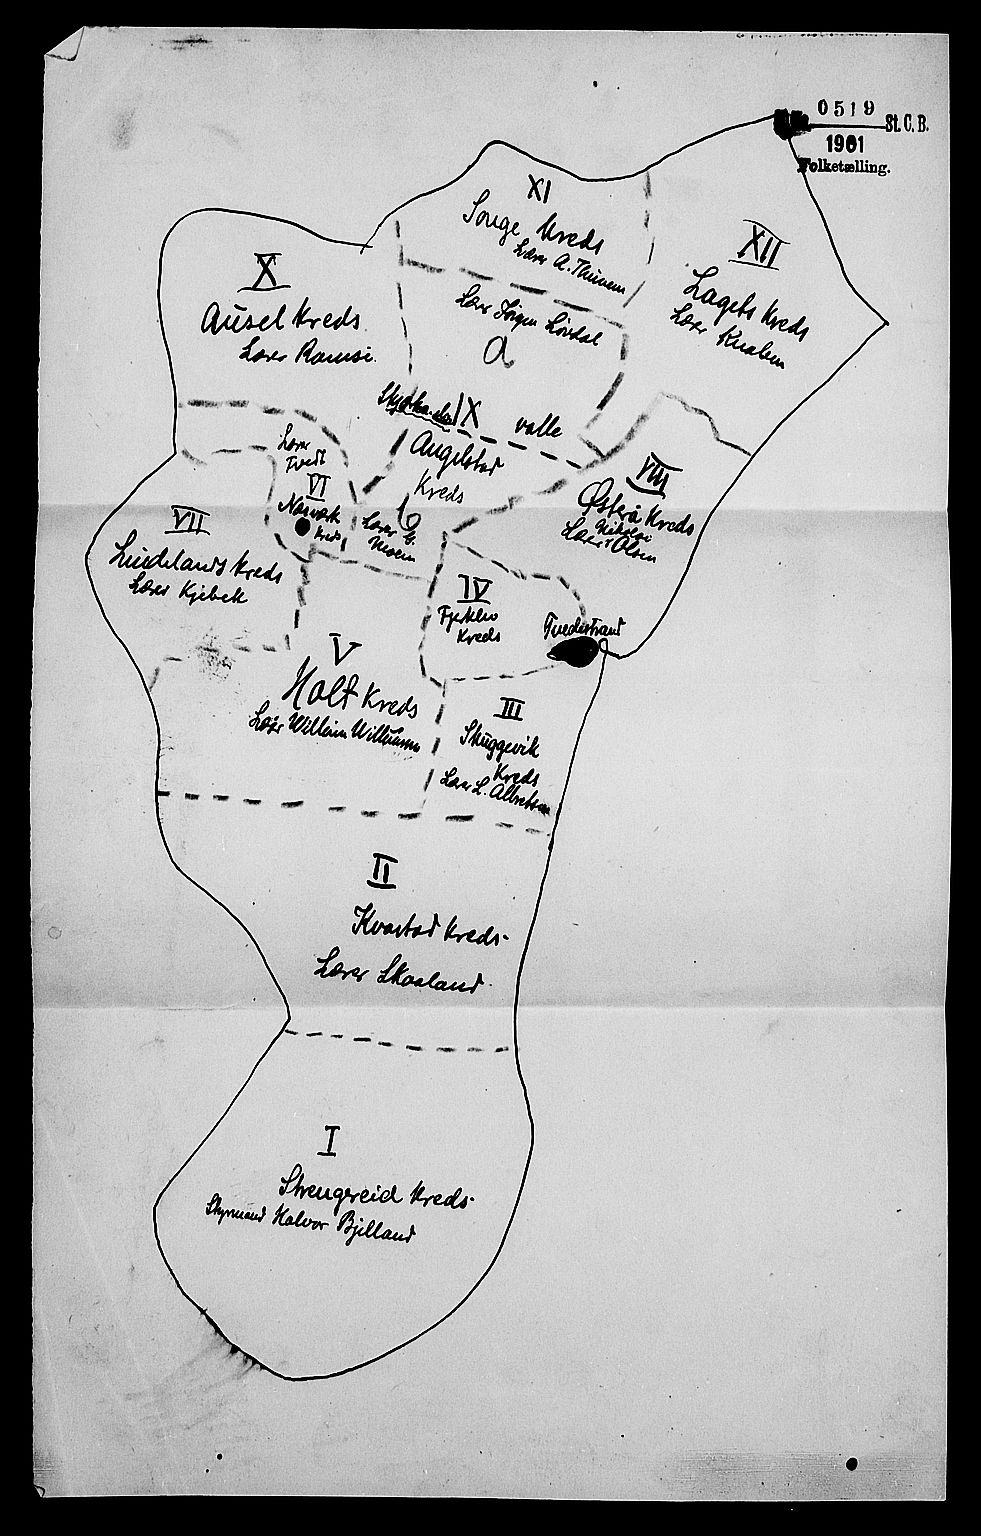 0519
St. C. B.
1901
Folketælling.
XI
Songe Kreds
Lærer A. Thunem
XII
Lagets Kreds
Lærer Knalem
X
Ausel Kreds
Lærer Ramse.
Lærer Jørgen Løvdal
a
IX
valle
Angelstad
Kreds
b
Lærer G.
Lærer
Tvedt
VI
Næsværk
Kreds
VIII
Østerå Kreds
Nikolai
Lærer Olsen
VII
Lindelands Kreds
Lærer Kjebek
IV
Kreds
Tvedestrand
V
Holt Kreds
Lærer William Willumsen
III
Skuggevik
Kreds
Lærer L. Albretsen
II
Kvastad Kreds.
Lærer Skaaland.
I
Strengereid Kreds.
Styrmand Halvor Bjelland